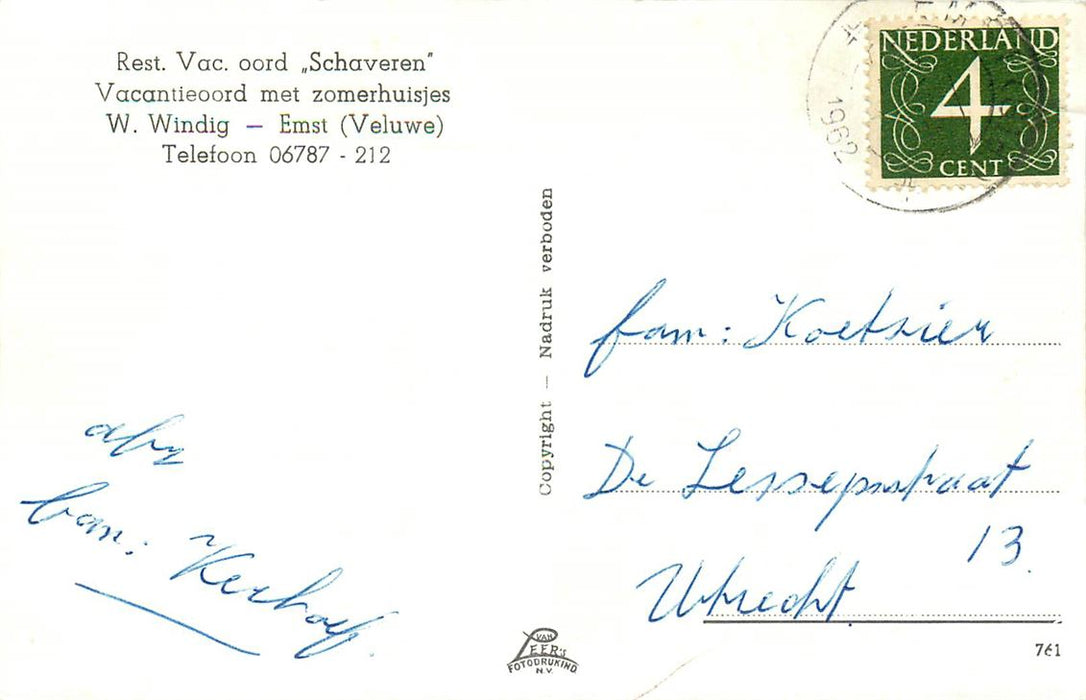 Rest. Vac. oord „Schaveren"
Vacantieoord met zomerhuisjes
W. Windig — Emst (Veluwe)
Telefoon 06787 - 212
NEDERLAND
4
CENT
1962
Copyright — Nadruk verboden
fam: Koetsier
De Lessepsstraat
13.
Utrecht
afz
fam: Kerhof.
VAN
LEER's
FOTODRUKIND
N.V.
761